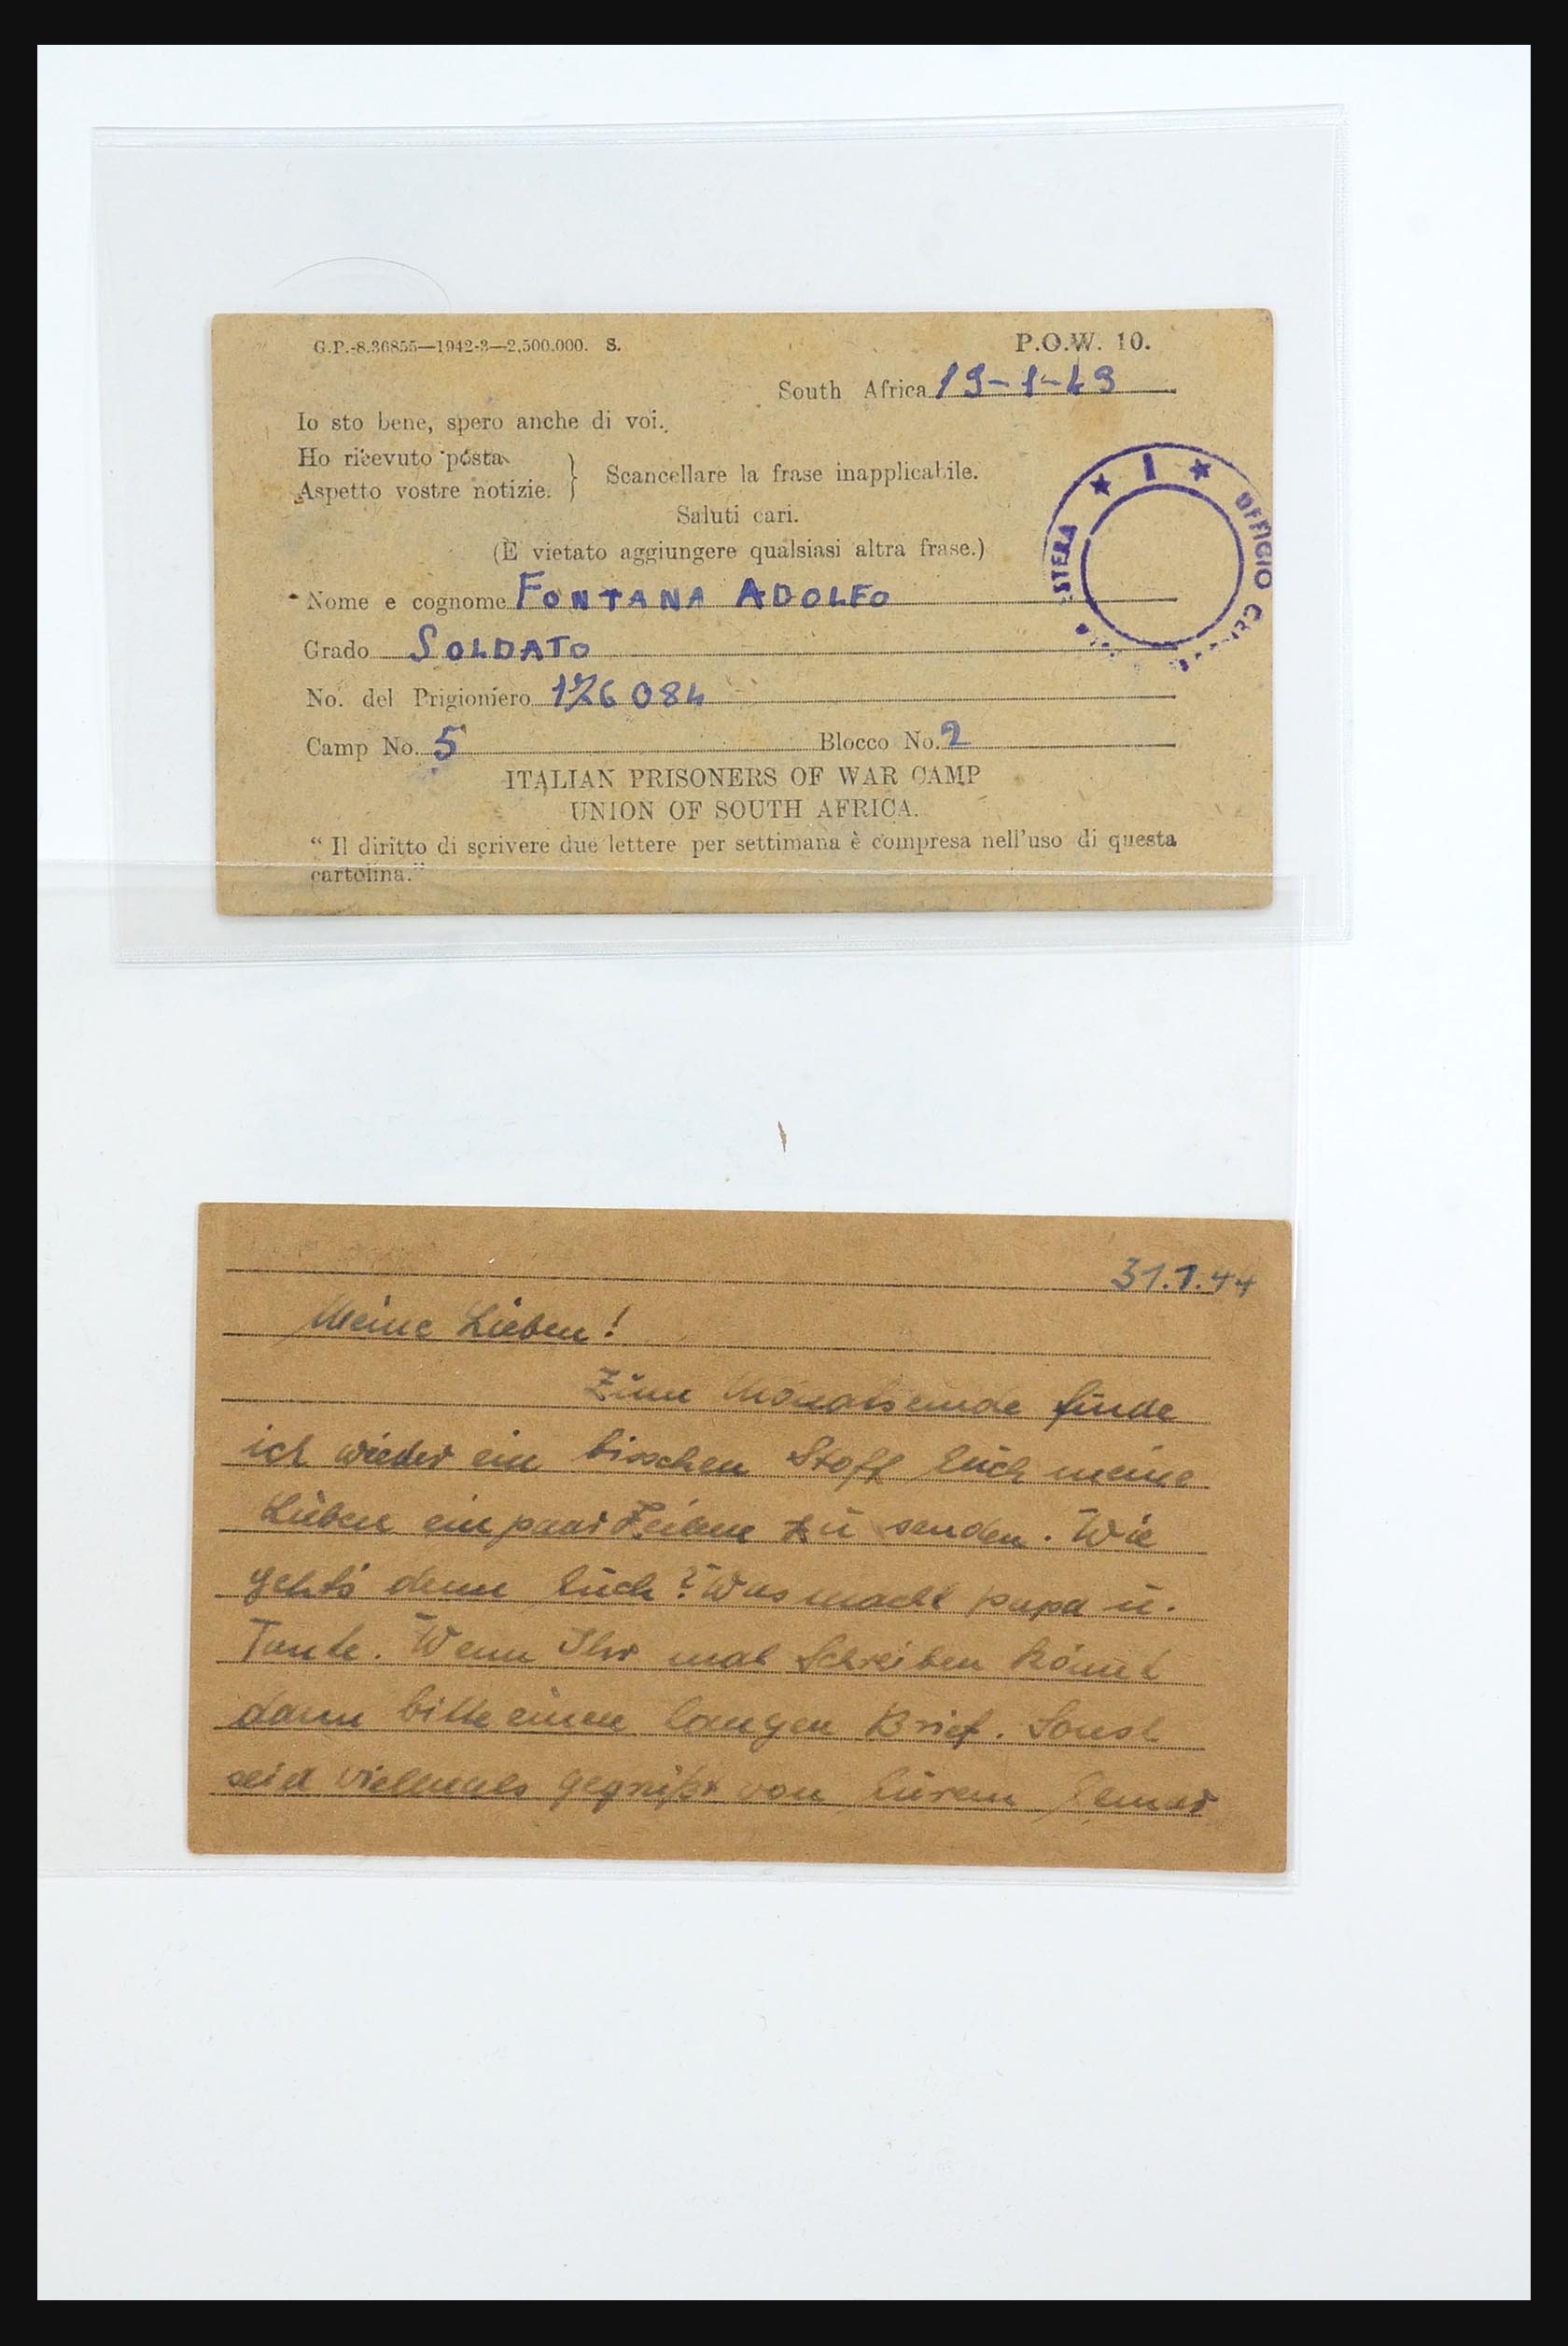 G.P.-8.36855—1942-3—2,500,000. S.
P.O.W. 10.
South Africa 19-1-43
Io sto bene, spero anche di voi.
Ho ricevuto posta
Aspetto vostre notizie.
} Scancellare la frase inapplicabile.
Saluti cari.
(È vietato aggiungere qualsiasi altra frase.)
Nome e cognome FONTANA ADOLFO
Grado SOLDATO
No. del Prigioniero 176084
Camp No. 5 Blocco No. 2
ITALIAN PRISONERS OF WAR CAMP
UNION OF SOUTH AFRICA.
“ Il diritto di scrivere due lettere per settimana è compresa nell’uso di questa
cartolina.”
STERA ★ I ★ UFFICIO
31.1.44
Meine Lieben!
Zum Monatsende finde
ich wieder ein bisschen Stoff Euch meine
Lieben ein paar Zeilen zu senden. Wie
gehts denn Euch? Was macht papa u.
Tante. Wenn Ihr mal Schreiben könnt
dann bitte einen langen Brief. Sonst
seid vielmals gegrüßt von Eurem